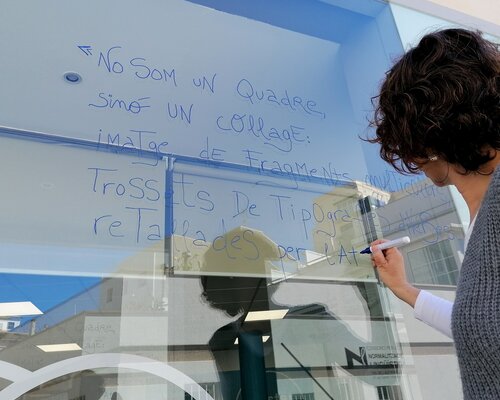 «No SOM UN QUADRE,
sinó UN COLLAGE:
IMATGE DE FRAGMENTS
TROSSETS DE TIPOGRA
RETALLADES PER L'AT
NORMALITZACIÓ
LINGÜÍSTICA